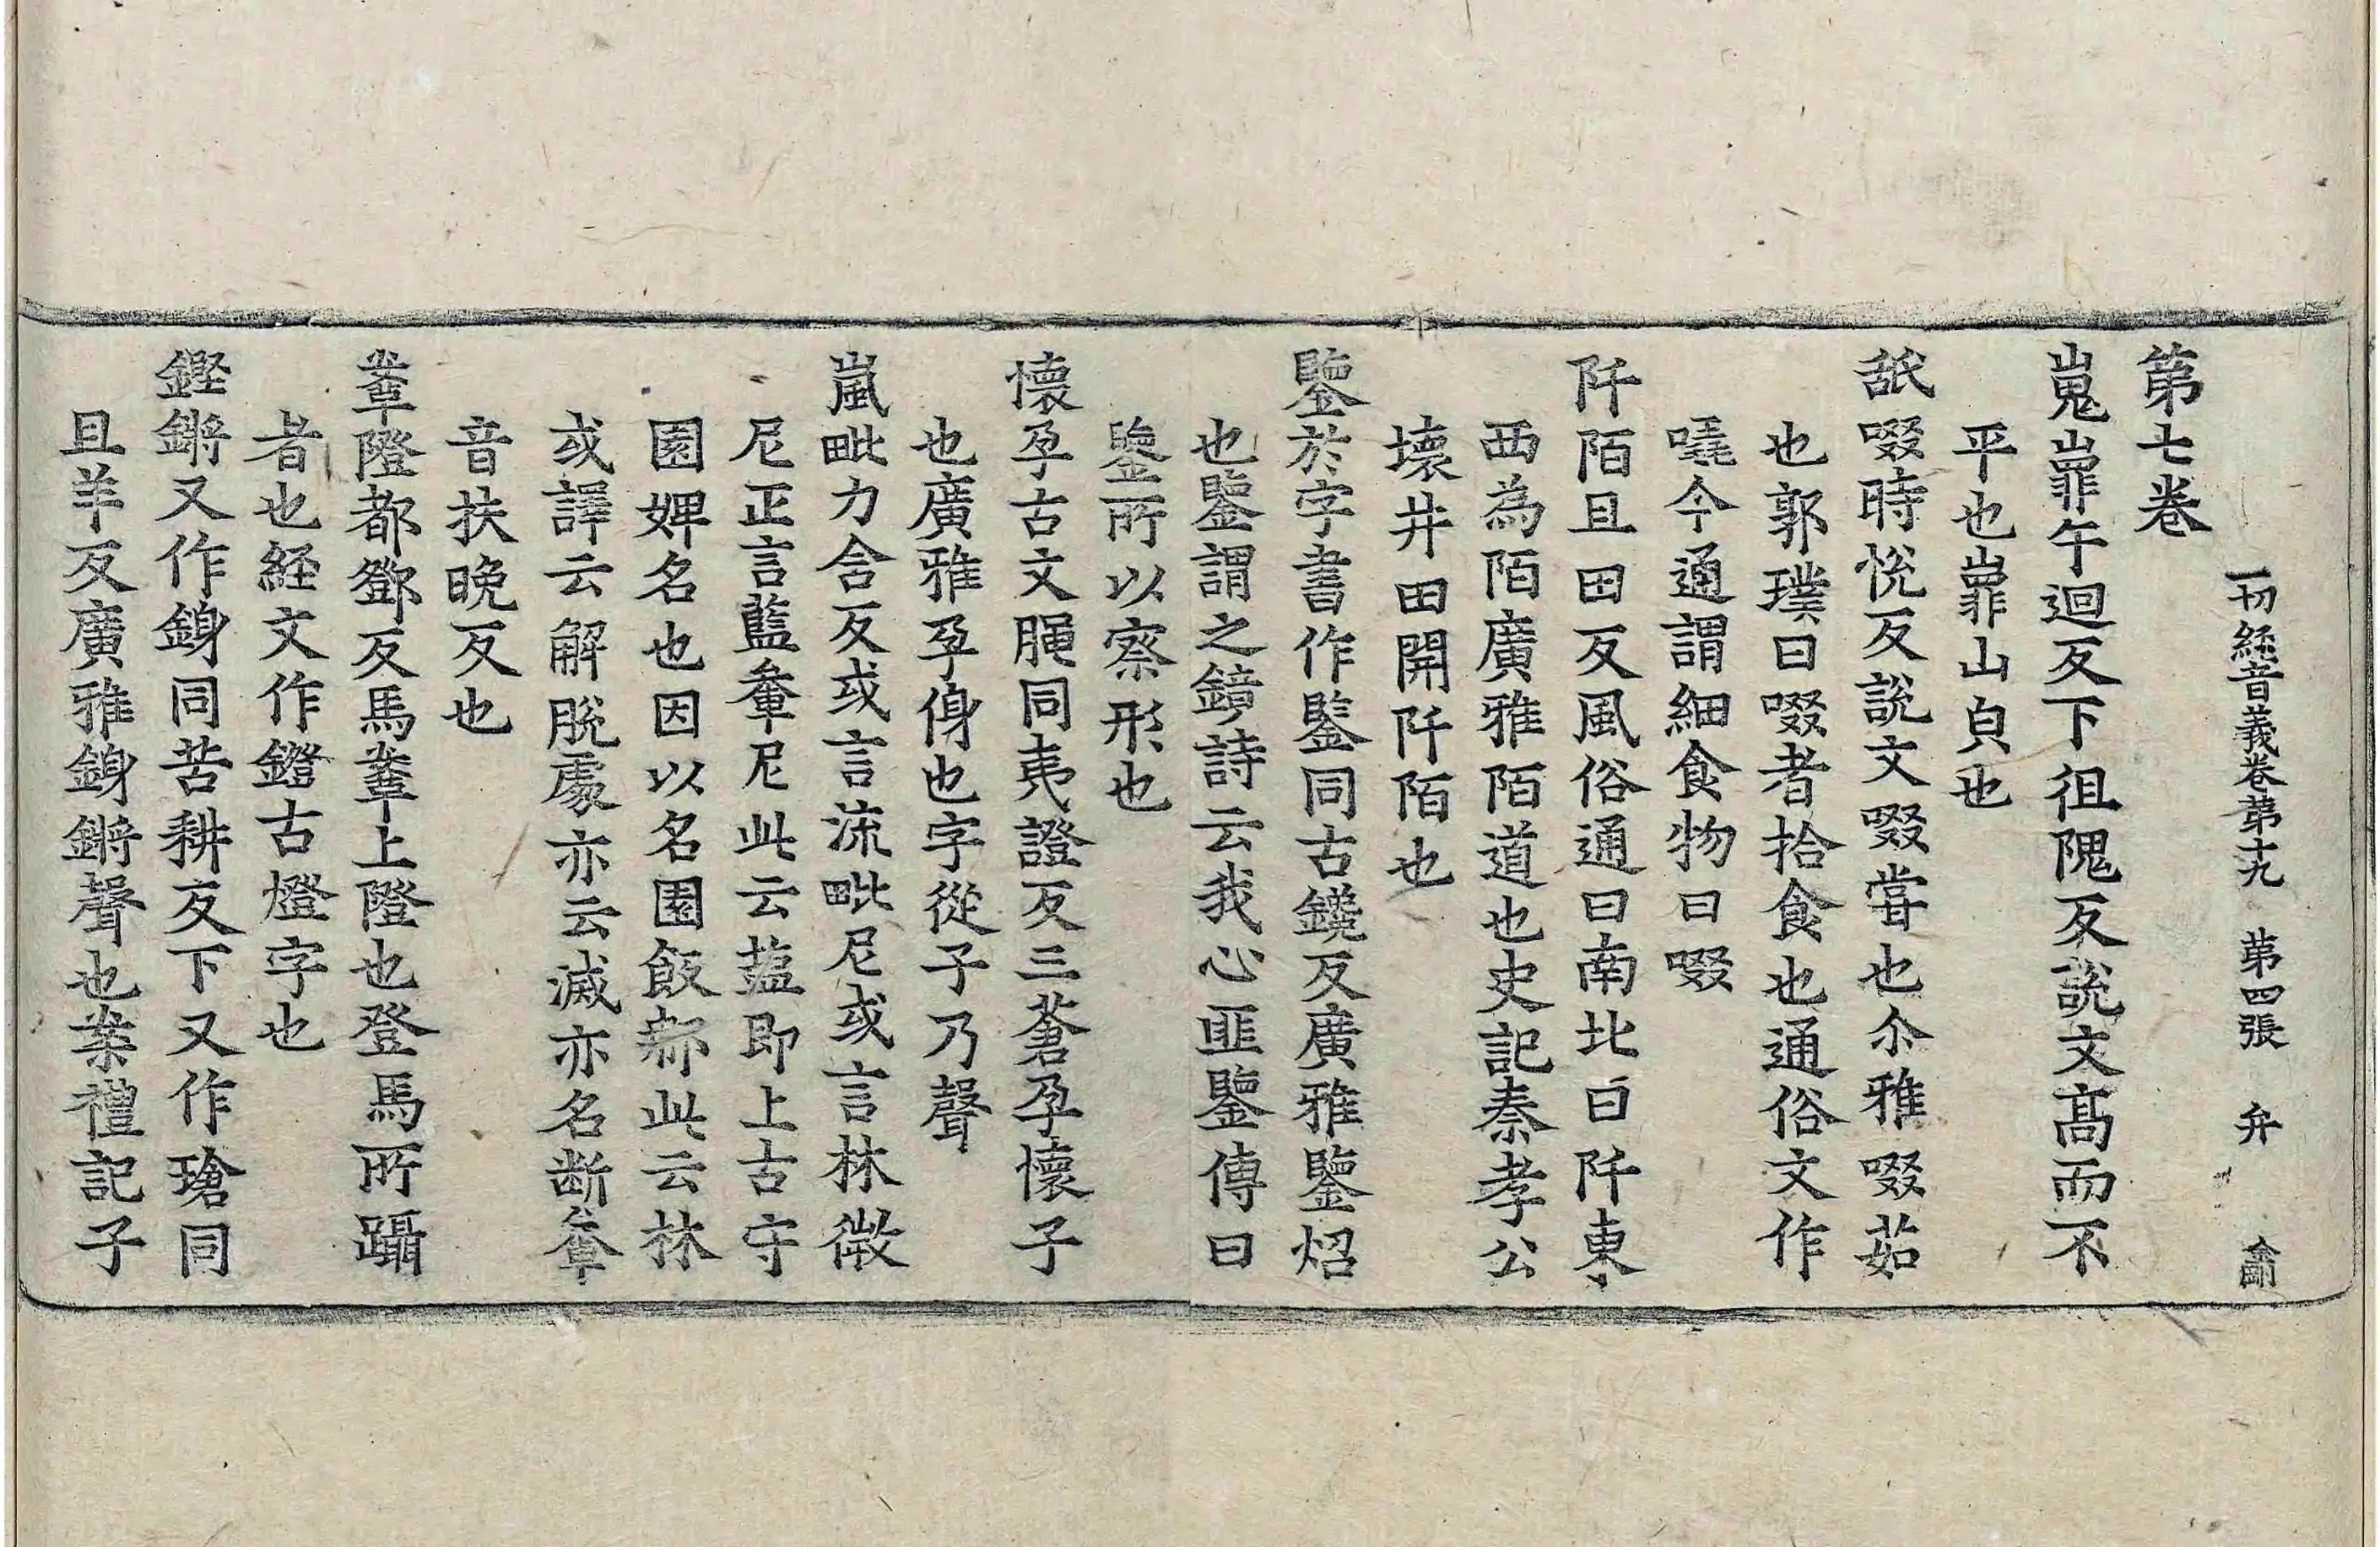 一切經音義卷第十九　第四張　弁
第七卷
嵬嶵午迴反下徂隗反說文高而不
平也嶵山皃也
舐啜時恱反說文啜甞也尒雅啜茹
也郭璞曰啜者拾食也通俗文作
㗱今通謂細食物曰啜
阡陌且田反風俗通曰南北曰阡東
西為陌廣雅陌道也史記秦孝公
壞井田開阡陌也
鑒於字書作鑒同古鑱反廣雅鑒炤
也鑒謂之鏡詩云我心匪鑒傳曰
鑒所以察形也
懷孕古文䐪同夷證反三蒼孕懷子
也廣雅孕㑗也字從子乃聲
嵐毗力含反或言流毗尼或言林微
尼正言藍軬尼此云䀋即上古守
園婢名也因以名園飯那此云林
或譯云解脫處亦云滅亦名断軬
音扶晚反也
鞌隥都鄧反馬鞌上隥也登馬所躡
者也経文作鐙古燈字也
鏗鏘又作鍞同苦耕反下又作瑲同
且羊反廣雅鍞鏘聲也案禮記子